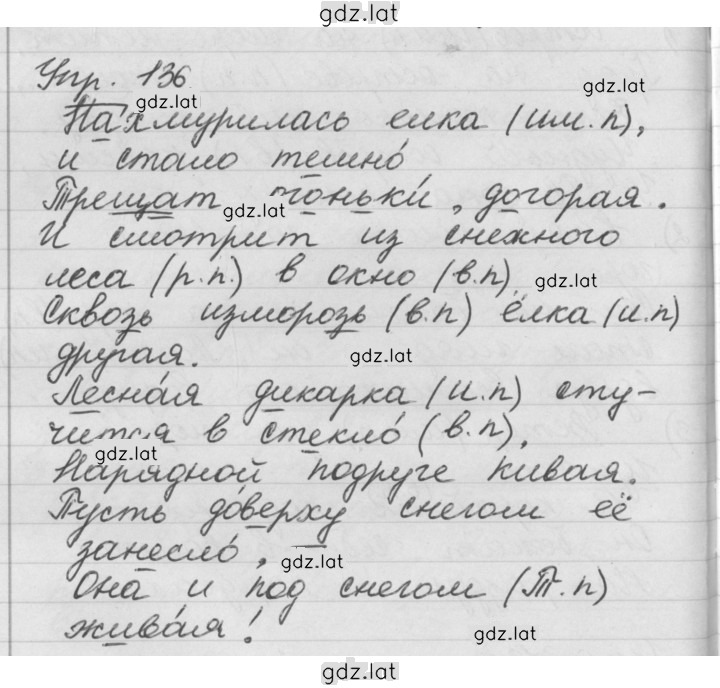 gdz.lat
Упр. 136
gdz.lat
gdz.lat
Нахмурилась елка (им. п),
и стало темно́
Трещат гоньки́, догорая.
gdz.lat
И смотрит из снежного
леса (р.п.) в окно (в.п),
gdz.lat
Сквозь изморозь (в.п) ёлка (и.п)
другая.
gdz.lat
Лесна́я дикарка (и.п) сту-
чится в стекло́ (в.п),
gdz.lat
Нарядной подруге кивая.
Пусть до́верху снегом её
занесло́,
gdz.lat
Она и под снегом (Т.п)
жива́я!
gdz.lat
gdz.lat